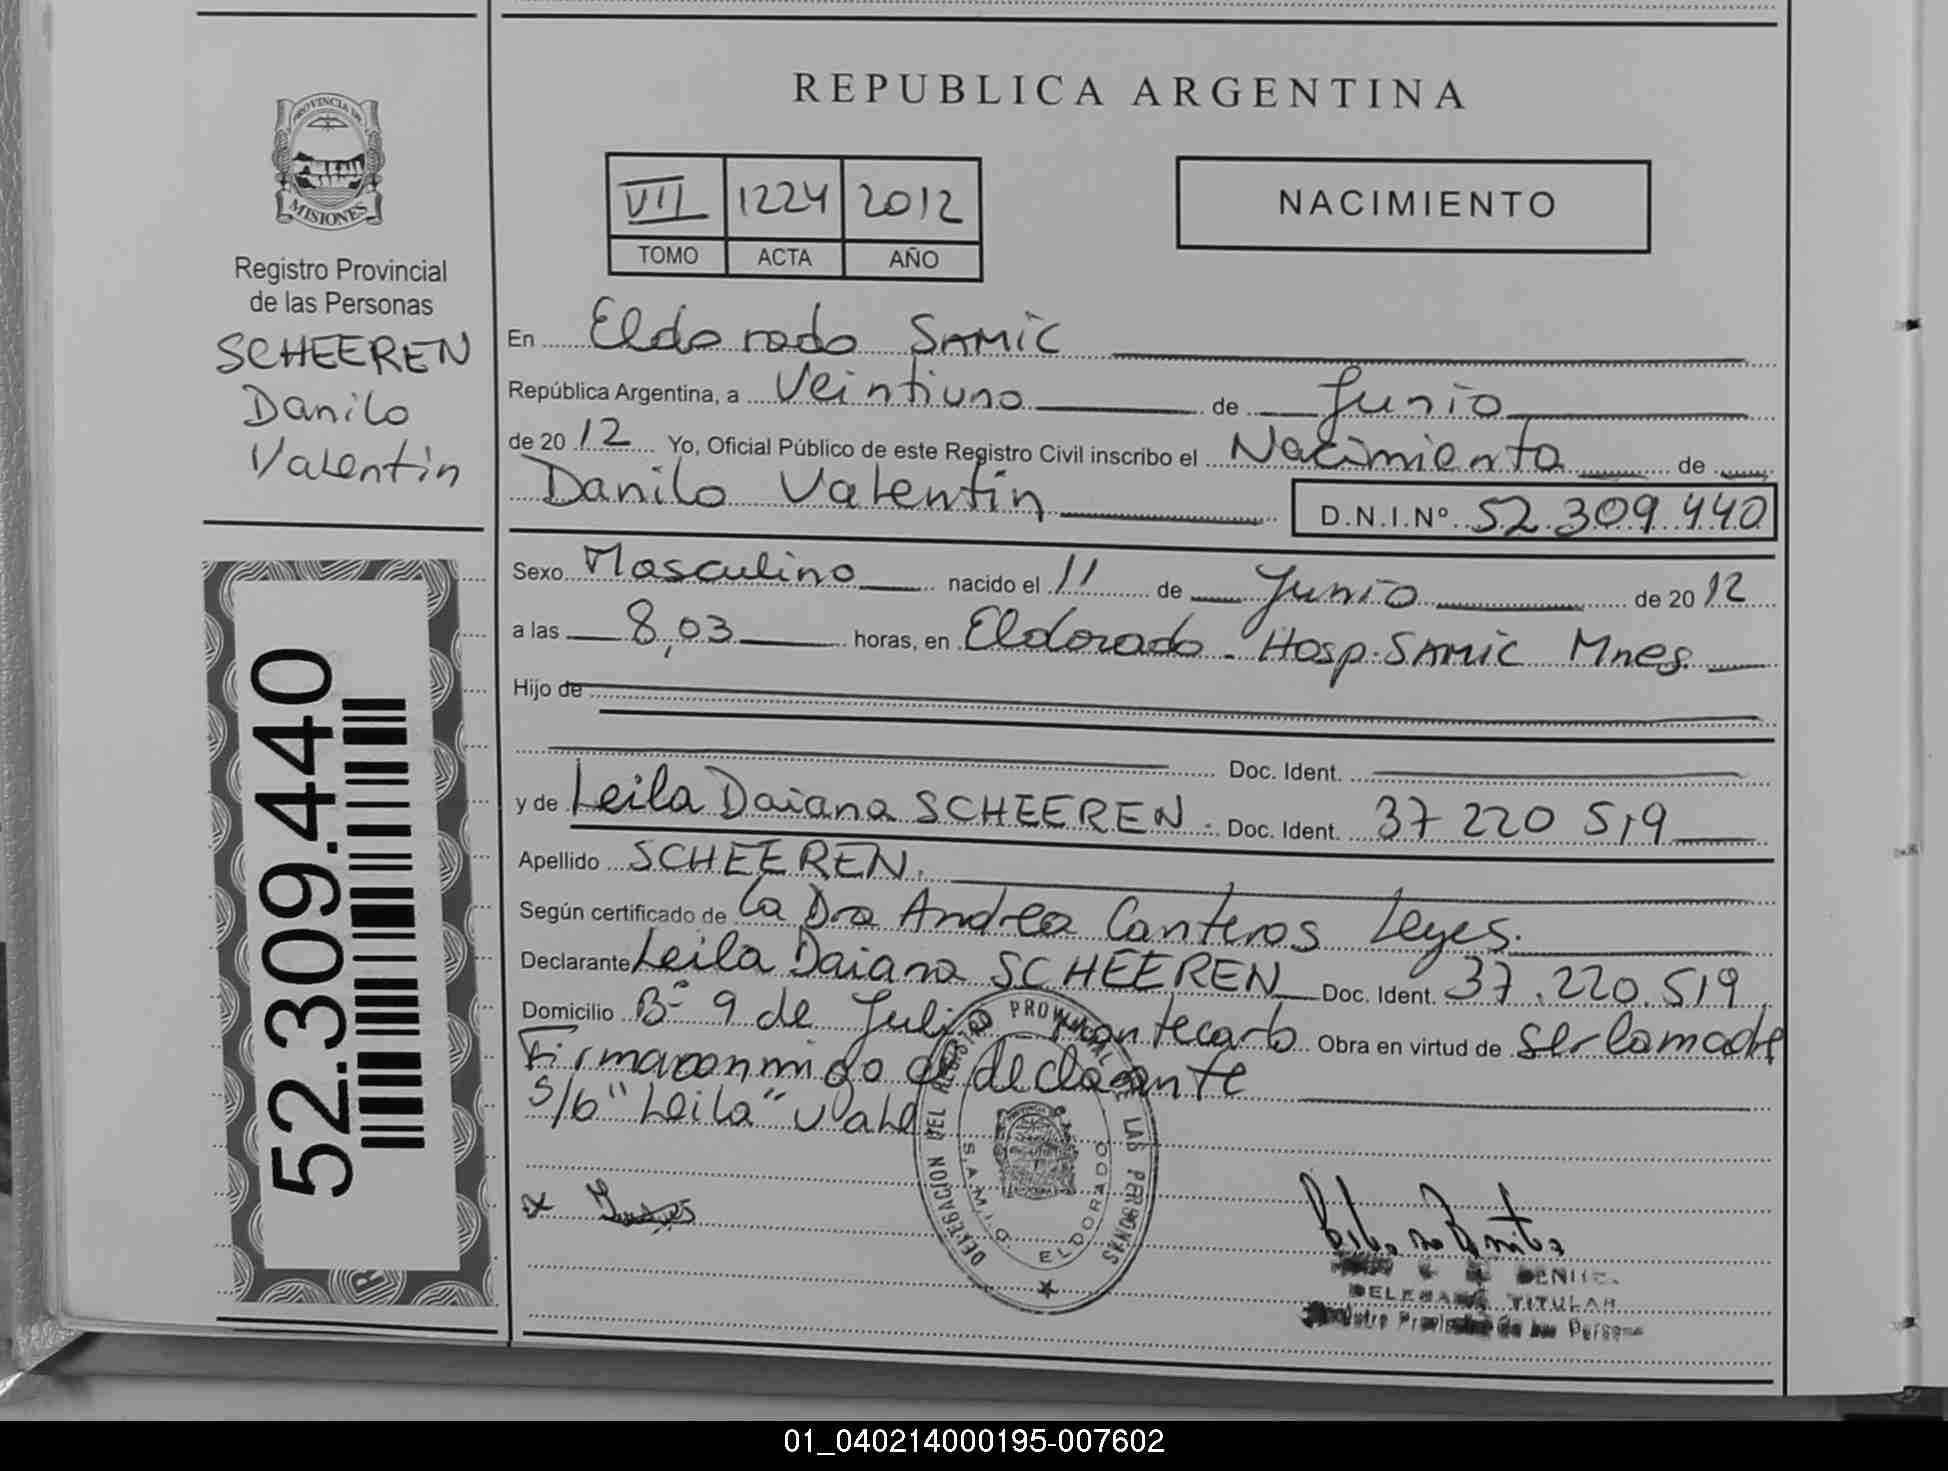 REPUBLICA ARGENTINA
PROVINCIA DE
MISIONES
Registro Provincial
de las Personas
SCHEEREN
Danilo
Valentín
52.309.440
VII 1224 2012
TOMO ACTA AÑO
NACIMIENTO
En Eldorado SAMIC
República Argentina, a Veintiuno de Junio
de 2012 Yo, Oficial Público de este Registro Civil inscribo el Nacimiento de
Danilo Valentín D.N.I.Nº 52.309.440
Sexo Masculino nacido el 11 de Junio de 2012
a las 8,03 horas, en Eldorado - Hosp. SAMIC Mnes.
Hijo de
Doc. Ident.
y de Leila Daiana SCHEEREN. Doc. Ident. 37 220 519
Apellido SCHEEREN.
Según certificado de la Dra Andrea Canteros Leyes.
Declarante Leila Daiana SCHEEREN Doc. Ident. 37.220.519
Domicilio Bº 9 de Julio Montecarlo Obra en virtud de ser la madre
Firma conmigo el declarante
S/b "Leila" Vale
DELEGACION DEL REGISTRO PROVINCIAL DE LAS PERSONAS
S.A.M.I.C. ELDORADO
x
BENITEZ
DELEGADA TITULAR
Registro Provincial de las Personas
01_040214000195-007602